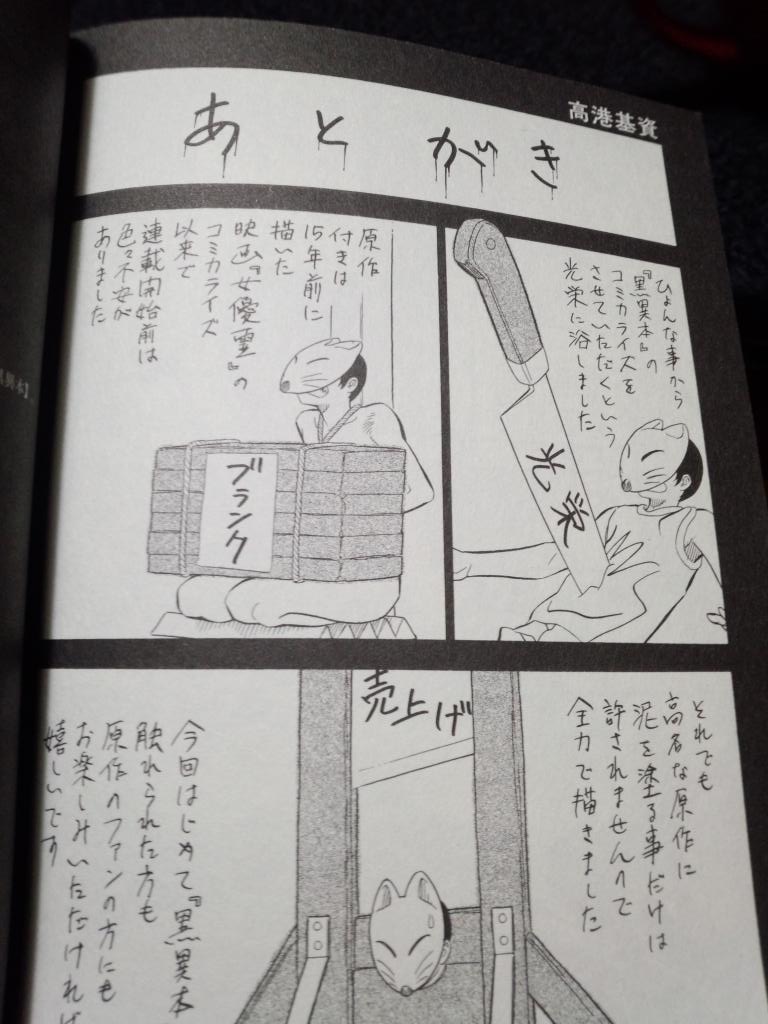 高港基資
あとがき
ひょんな事から
『黒異本』の
コミカライズを
させていただくという
光栄に浴しました
光栄
原作
付きは
15年前に
描いた
映画『女優霊』の
コミカライズ
以来で
連載開始前は
色々不安が
ありました
ブランク
それでも
高名な原作に
泥を塗る事だけは
許されませんので
全力で描きました
売上げ
今回はじめて『黒異本
触れられた方も
原作のファンの方にも
お楽しみいただければ
嬉しいです